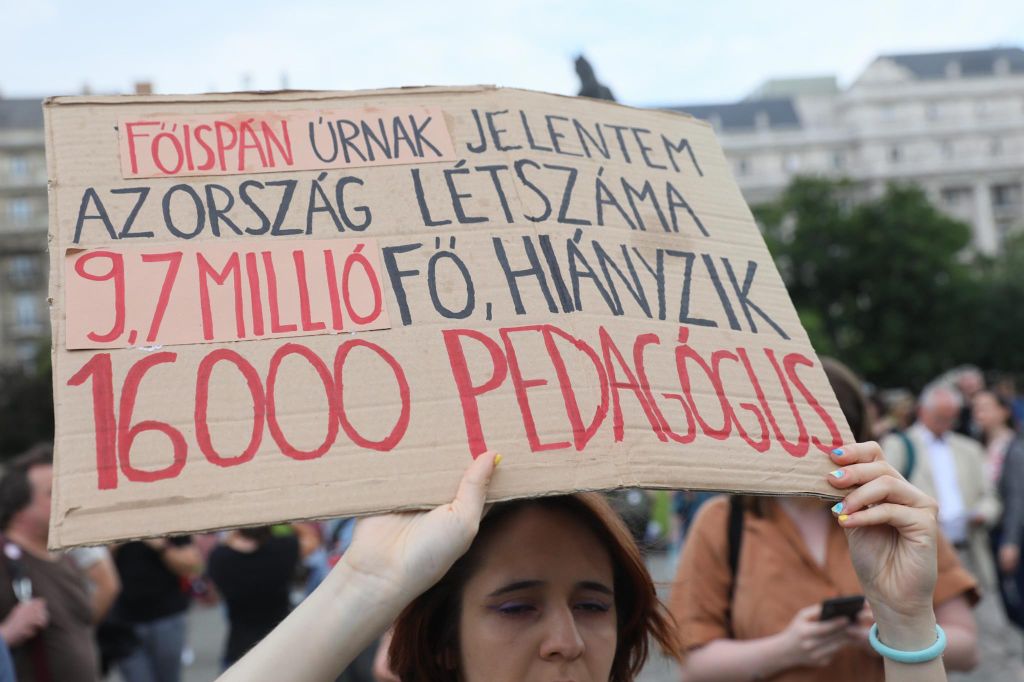 FŐISPÁN ÚRNAK JELENTEM
AZ ORSZÁG LÉTSZÁMA
9,7 MILLIÓ FŐ, HIÁNYZIK
16000 PEDAGÓGUS